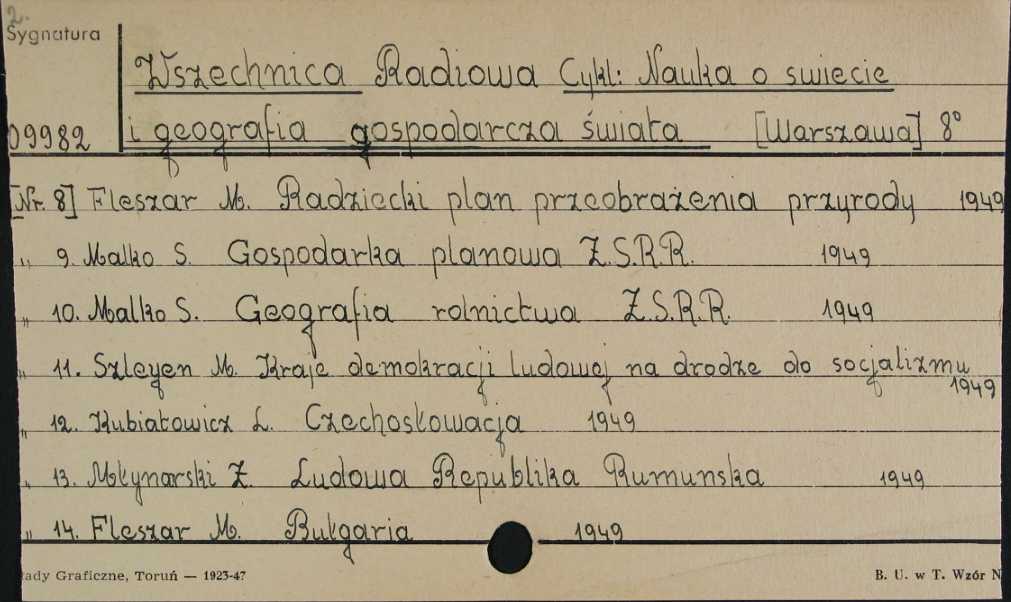 2.
Sygnatura
Wszechnica Radiowa Cykl: Nauka o świecie
09982 i geografia gospodarcza świata [Warszawa] 8°
[Nr. 8] Fleszar M. Radziecki plan przeobrażenia przyrody 1949
„ 9. Malko S. Gospodarka planowa Z.S.R.R. 1949
„ 10. Malko S. Geografia rolnictwa Z.S.R.R. 1949
„ 11. Szleyen M. Kraje demokracji ludowej na drodze do socjalizmu
1949
„ 12. Kubiatowicz L. Czechosłowacja 1949
„ 13. Młynarski Z. Ludowa Republika Rumunska 1949
„ 14. Fleszar M. Bułgaria 1949
łady Graficzne, Toruń — 1923-47 B. U. w T. Wzór N